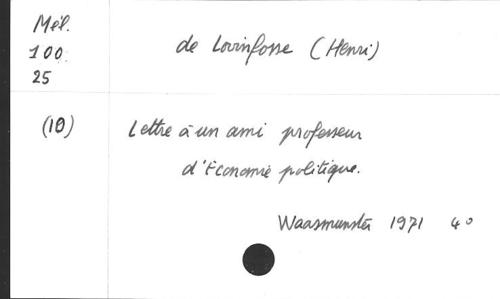 Mél.
100
25
de Lovinfosse (Henri)
(10)
Lettre à un ami professeur
d'Economie politique.
Waasmunster 1971 4o